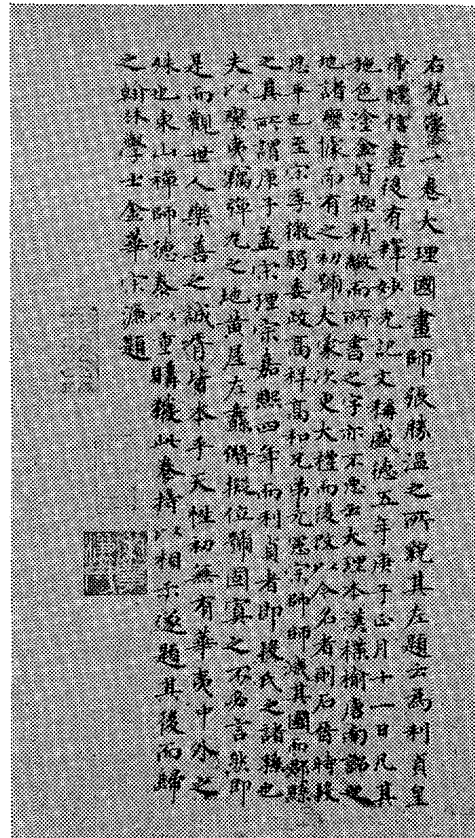 右梵像一卷大理國畫師張勝溫之所貌其左題云為利貞皇
帝瞟信畫後有釋妙光記文稱盛德五年庚子正月十一日凡其
施色塗金皆極精緻而所書之字亦不惡云大理本漢楪榆唐南詔之
地諸蠻據而有之初號大蒙次更大禮而後改以今名者則石晉時段
思平也至宋季微弱委政高祥高和兄弟元憲宗帥師滅其國而郡縣
之其所謂庚子蓋宋理宗嘉熙四年而利貞者即段氏之諸孫也
夫以蠻夷竊彈丸之地黃屋左纛僭擬位號固寘之不足言然即
是而觀世人樂善之誠胥皆本乎天性初無有華夷中外之
殊也東山禪師德泰以重購獲此卷持以相示遂題其後而歸
之翰林學士金華宋濂題